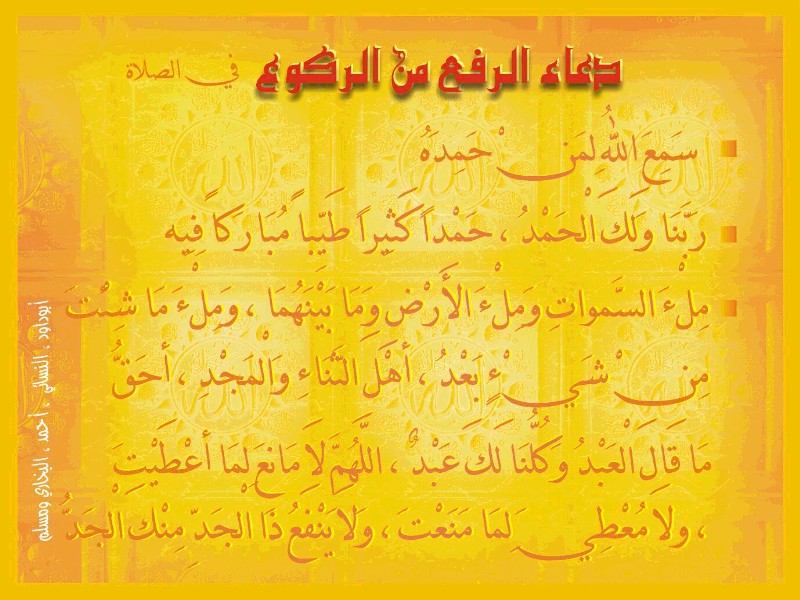 دعاء الرفع من الركوع في الصلاة
سَمِعَ اللَّهُ لِمَنْ حَمِدَهُ
رَبَّنَا وَلَكَ الْحَمْدُ ، حَمْداً كَثِيراً طَيِّباً مُبَارَكاً فِيهِ
مِلْءَ السَّمواتِ وَمِلْءَ الأَرْضِ وَمَا بَيْنَهُمَا ، وَمِلْءَ مَا شِئْتَ
مِنْ شَيْءٍ بَعْدُ ، أهْلَ الثَّنَاءِ وَالْمَجْدِ ، أحَقُّ
مَا قَالَ الْعَبْدُ وَكُلُّنَا لَكَ عَبْدٌ ، اللَّهُمَّ لاَ مَانِعَ لِمَا أعْطَيْتَ
، ولاَ مُعْطِيَ لِمَا مَنَعْتَ ، وَلاَ يَنْفَعُ ذَا الْجَدِّ مِنْكَ الْجَدُّ
أبوداود ، النسائي ، أحمد ، البخاري ومسلم